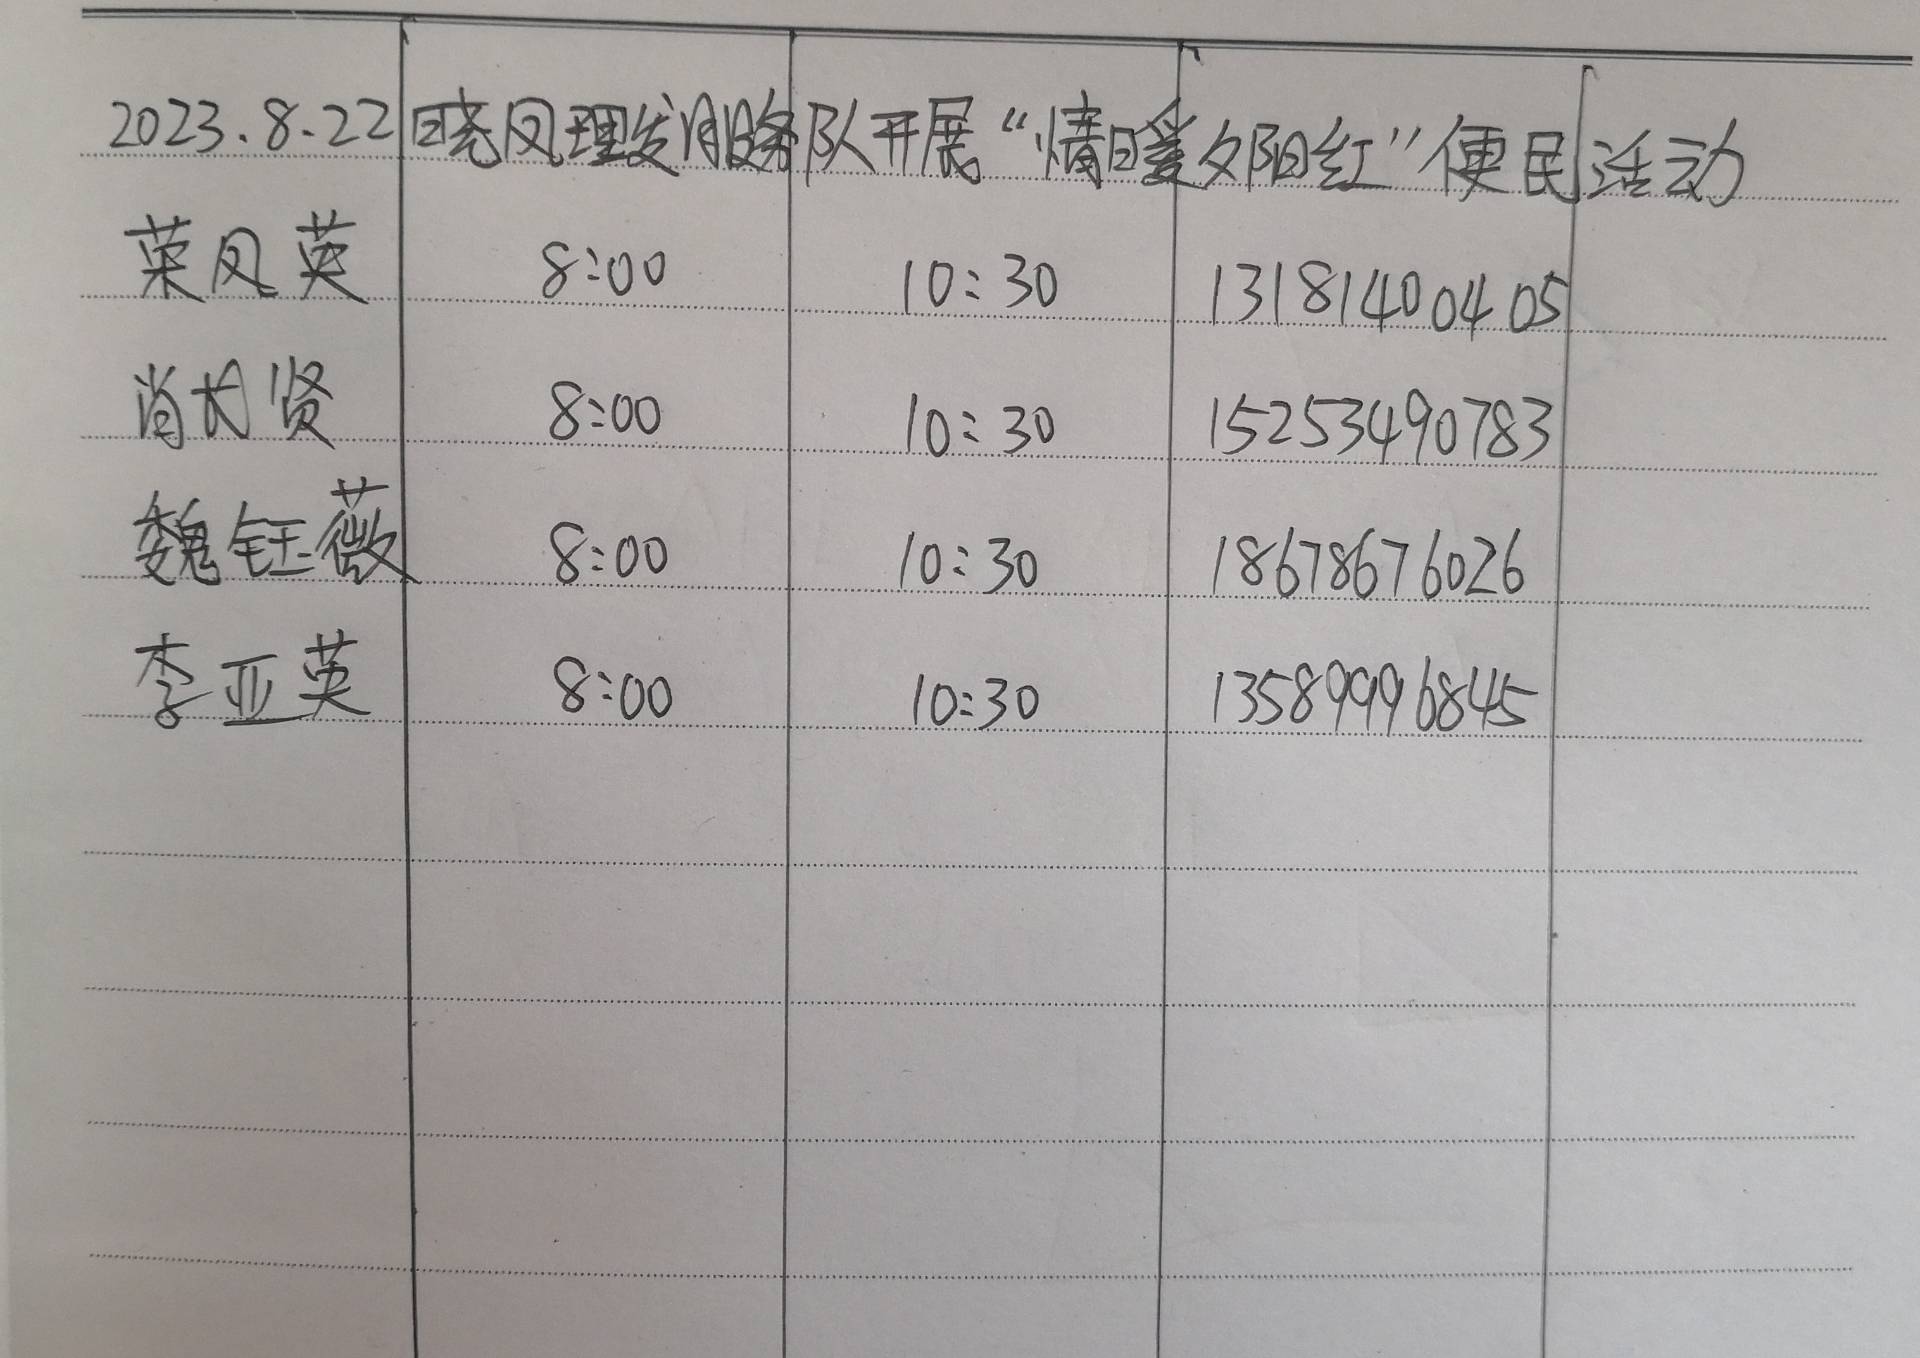 2023.8.22 晓凤理发服务队开展“情暖夕阳红”便民活动
荣凤英 8:00 10:30 13181400405
肖长贤 8:00 10:30 15253490783
魏钰薇 8:00 10:30 18678676026
李亚英 8:00 10:30 13589996845